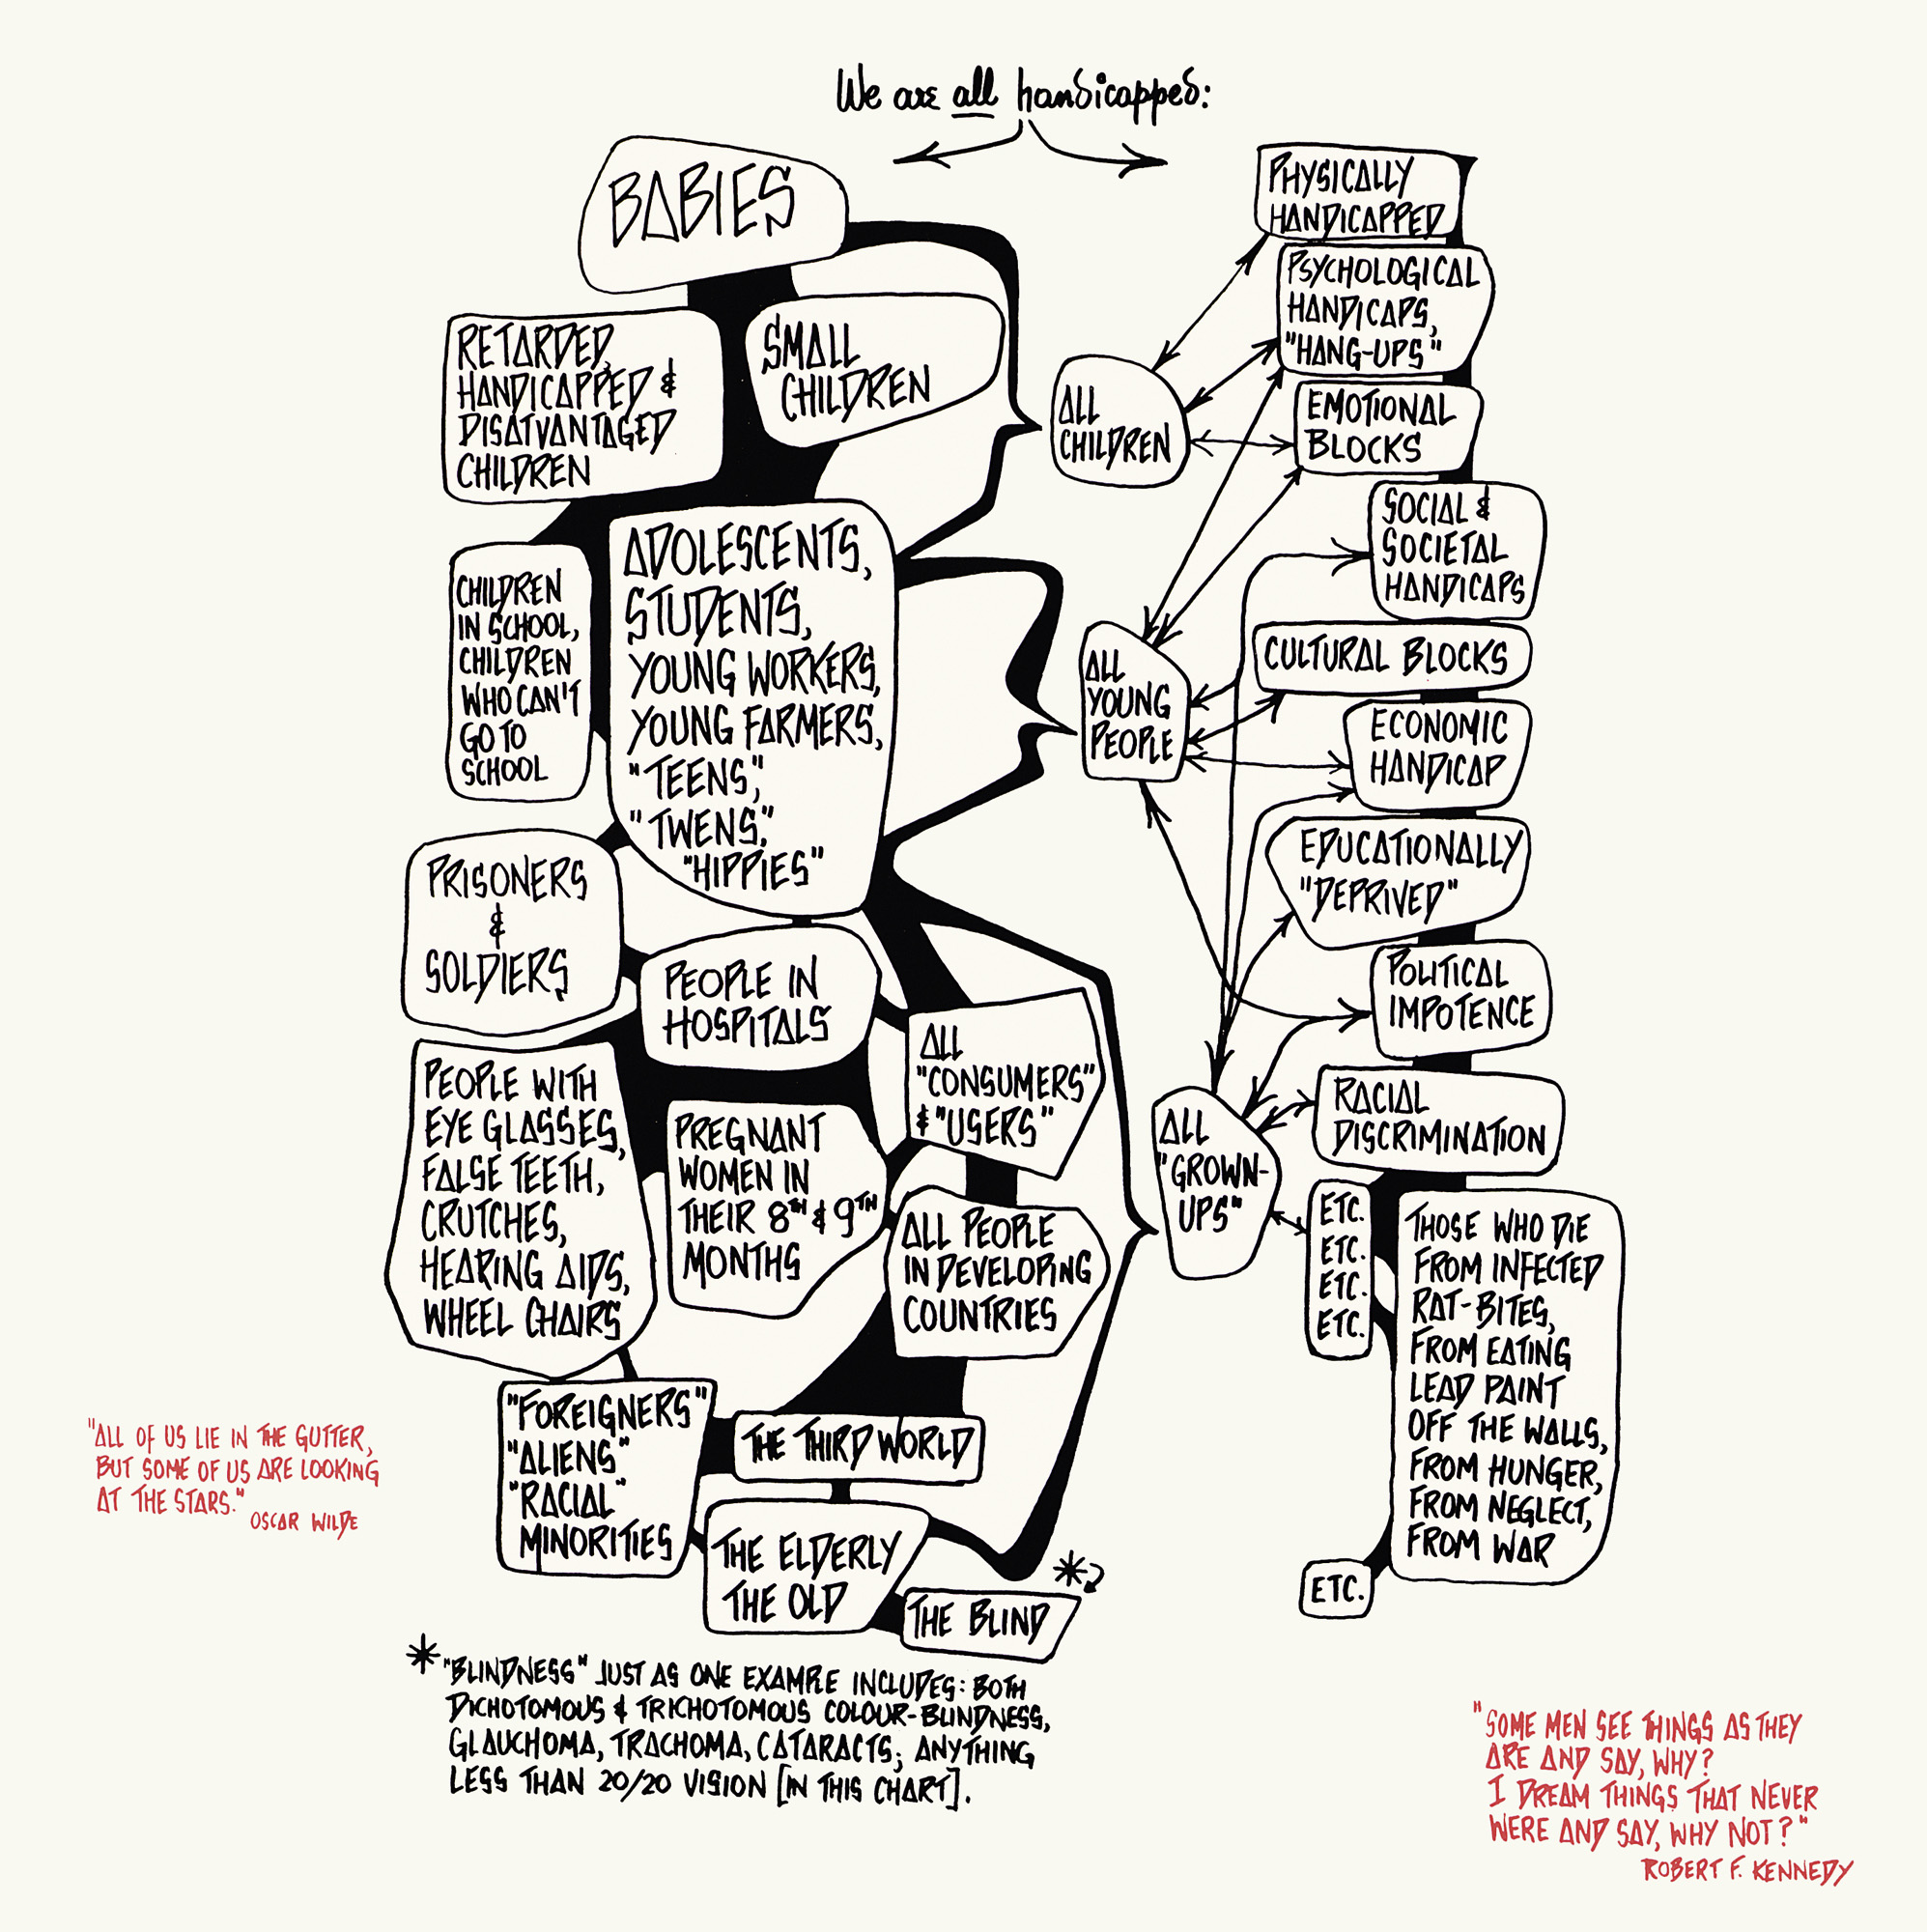 We are all handicapped:
BABIES
RETARDED,
HANDICAPPED &
DISATVANTAGED
CHILDREN
SMALL
CHILDREN
CHILDREN
IN SCHOOL,
CHILDREN
WHO CAN'T
GO TO
SCHOOL
ADOLESCENTS,
STUDENTS,
YOUNG WORKERS,
YOUNG FARMERS,
"TEENS,"
"TWENS,"
"HIPPIES"
PRISONERS
&
SOLDIERS
PEOPLE IN
HOSPITALS
PEOPLE WITH
EYE GLASSES,
FALSE TEETH,
CRUTCHES,
HEARING AIDS,
WHEEL CHAIRS
PREGNANT
WOMEN IN
THEIR 8TH & 9TH
MONTHS
ALL
"CONSUMERS"
& "USERS"
ALL PEOPLE
IN DEVELOPING
COUNTRIES
"FOREIGNERS"
"ALIENS"
"RACIAL"
MINORITIES
THE THIRD WORLD
THE ELDERLY
THE OLD
THE BLIND
*
ALL
CHILDREN
ALL
YOUNG
PEOPLE
ALL
"GROWN-
UPS"
PHYSICALLY
HANDICAPPED
PSYCHOLOGICAL
HANDICAPS,
"HANG-UPS"
EMOTIONAL
BLOCKS
SOCIAL &
SOCIETAL
HANDICAPS
CULTURAL BLOCKS
ECONOMIC
HANDICAP
EDUCATIONALLY
"DEPRIVED"
POLITICAL
IMPOTENCE
RACIAL
DISCRIMINATION
ETC.
ETC.
ETC.
ETC.
THOSE WHO DIE
FROM INFECTED
RAT-BITES,
FROM EATING
LEAD PAINT
OFF THE WALLS,
FROM HUNGER,
FROM NEGLECT,
FROM WAR
ETC.
"ALL OF US LIE IN THE GUTTER,
BUT SOME OF US ARE LOOKING
AT THE STARS."
OSCAR WILDE
* "BLINDNESS" JUST AS ONE EXAMPLE INCLUDES: BOTH
DICHOTOMOUS & TRICHOTOMOUS COLOUR-BLINDNESS,
GLAUCHOMA, TRACHOMA, CATARACTS; ANYTHING
LESS THAN 20/20 VISION [IN THIS CHART].
"SOME MEN SEE THINGS AS THEY
ARE AND SAY, WHY?
I DREAM THINGS THAT NEVER
WERE AND SAY, WHY NOT?"
ROBERT F. KENNEDY